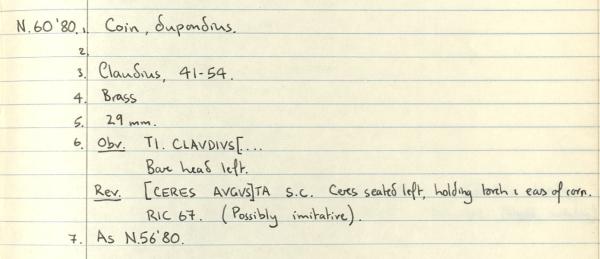 N.60'80. 1. Coin, dupondius.
2.
3. Claudius, 41-54.
4. Brass
5. 29 mm.
6. Obv. TI. CLAVDIVS[...
Bare head left.
Rev. [CERES AVGVS]TA S.C. Ceres seated left, holding torch & ears of corn.
RIC 67. (Possibly imitative).
7. As N.56'80.